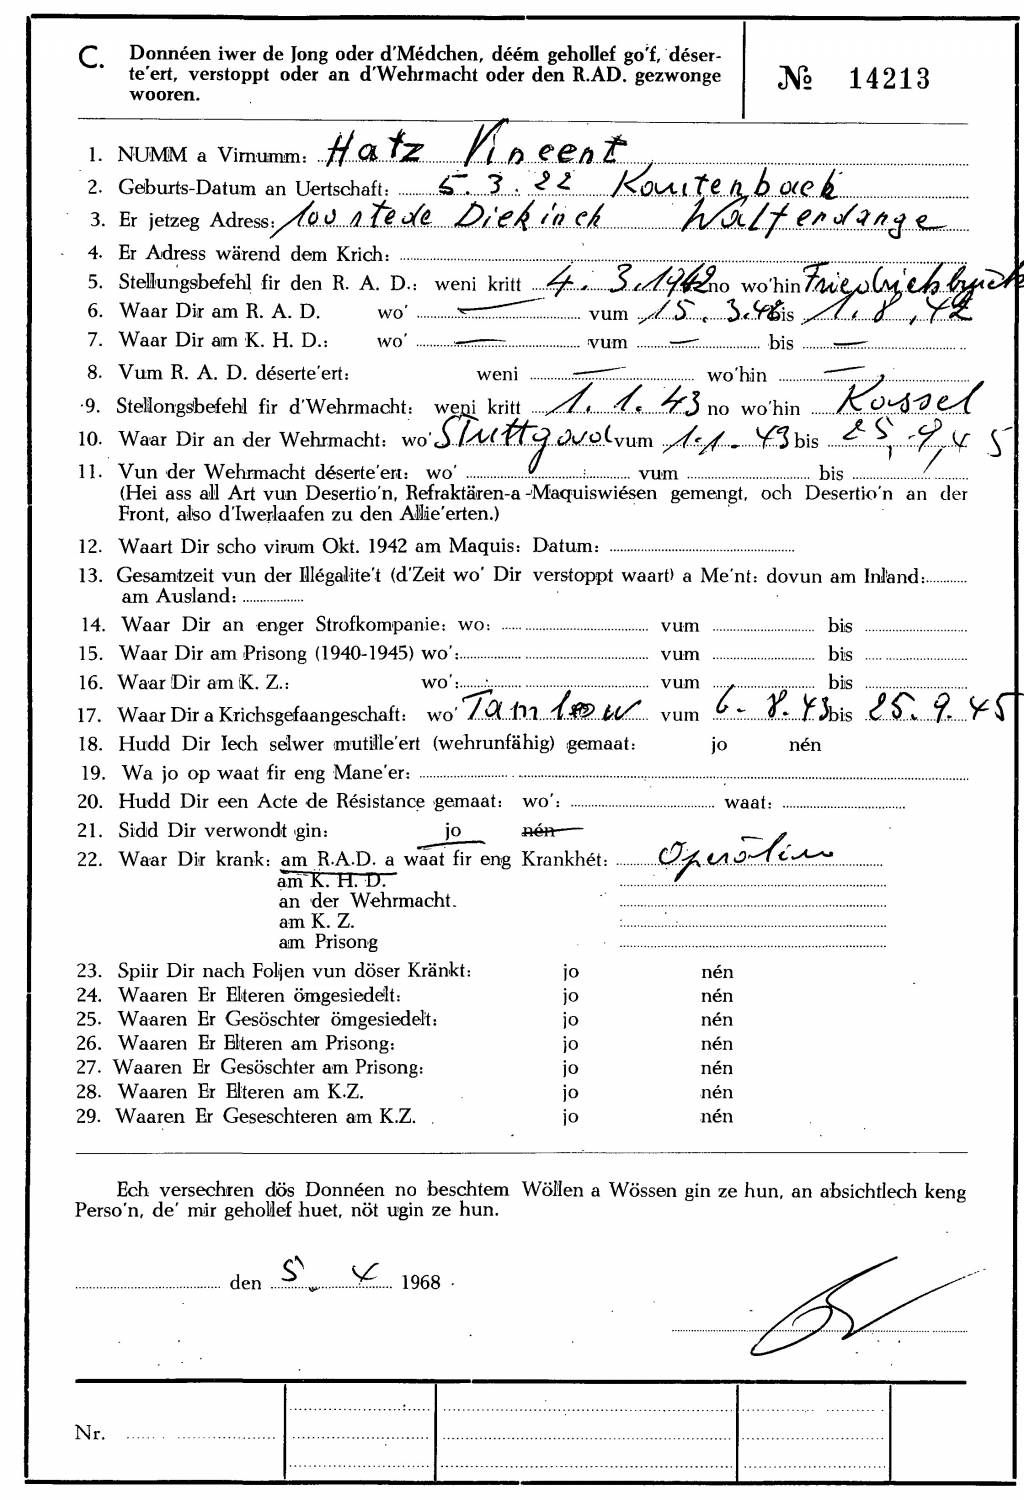 C. Donnéen iwer de Jong oder d'Médchen, déém gehollef go'f, déser-
te'ert, verstoppt oder an d'Wehrmacht oder den R.AD. gezwonge
wooren.
№ 14213
1. NUMM a Virnumm: Hatz Vincent
2. Geburts-Datum an Uertschaft: 5.3.22 Kautenbach
3. Er jetzeg Adress: Diekirch
4. Er Adress wärend dem Krich:
5. Stellungsbefehl fir den R. A. D.: weni kritt 4.3.1942 no wo'hin
6. Waar Dir am R. A. D. wo' — vum 15.3.42 bis 1.8.42
7. Waar Dir am K. H. D.: wo' — vum — bis —
8. Vum R. A. D. déserte'ert: weni — wo'hin —
9. Stellongsbefehl fir d'Wehrmacht: weni kritt 1.1.43 no wo'hin Kassel
10. Waar Dir an der Wehrmacht: wo' vum 1.1.43 bis 25.9.45
11. Vun der Wehrmacht déserte'ert: wo' vum bis
(Hei ass all Art vun Desertio'n, Refraktären-a-Maquiswiésen gemengt, och Desertio'n an der
Front, also d'Iwerlaafen zu den Allie'erten.)
12. Waart Dir scho virum Okt. 1942 am Maquis: Datum:
13. Gesamtzeit vun der Illégalite't (d'Zeit wo' Dir verstoppt waart) a Me'nt: dovun am Inland:
am Ausland:
14. Waar Dir an enger Strofkompanie: wo: vum bis
15. Waar Dir am Prisong (1940-1945) wo': vum bis
16. Waar Dir am K. Z.: wo': vum bis
17. Waar Dir a Krichsgefaangeschaft: wo' Tambow vum 6.8.43 bis 25.9.45
18. Hudd Dir Iech selwer mutille'ert (wehrunfähig) gemaat: jo nén
19. Wa jo op waat fir eng Mane'er:
20. Hudd Dir een Acte de Résistance gemaat: wo': waat:
21. Sidd Dir verwondt gin: jo nén
22. Waar Dir krank: am R.A.D. a waat fir eng Krankhét:
am K. H. D.
an der Wehrmacht.
am K. Z.
am Prisong
23. Spiir Dir nach Foljen vun döser Kränkt: jo nén
24. Waaren Er Elteren ömgesiedelt: jo nén
25. Waaren Er Gesöschter ömgesiedelt: jo nén
26. Waaren Er Elteren am Prisong: jo nén
27. Waaren Er Gesöschter am Prisong: jo nén
28. Waaren Er Elteren am K.Z. jo nén
29. Waaren Er Geseschteren am K.Z. jo nén
Ech versechren dös Donnéen no beschtem Wöllen a Wössen gin ze hun, an absichtlech keng
Perso'n, de' mir gehollef huet, nöt ugin ze hun.
den 5. 4 1968
Nr.